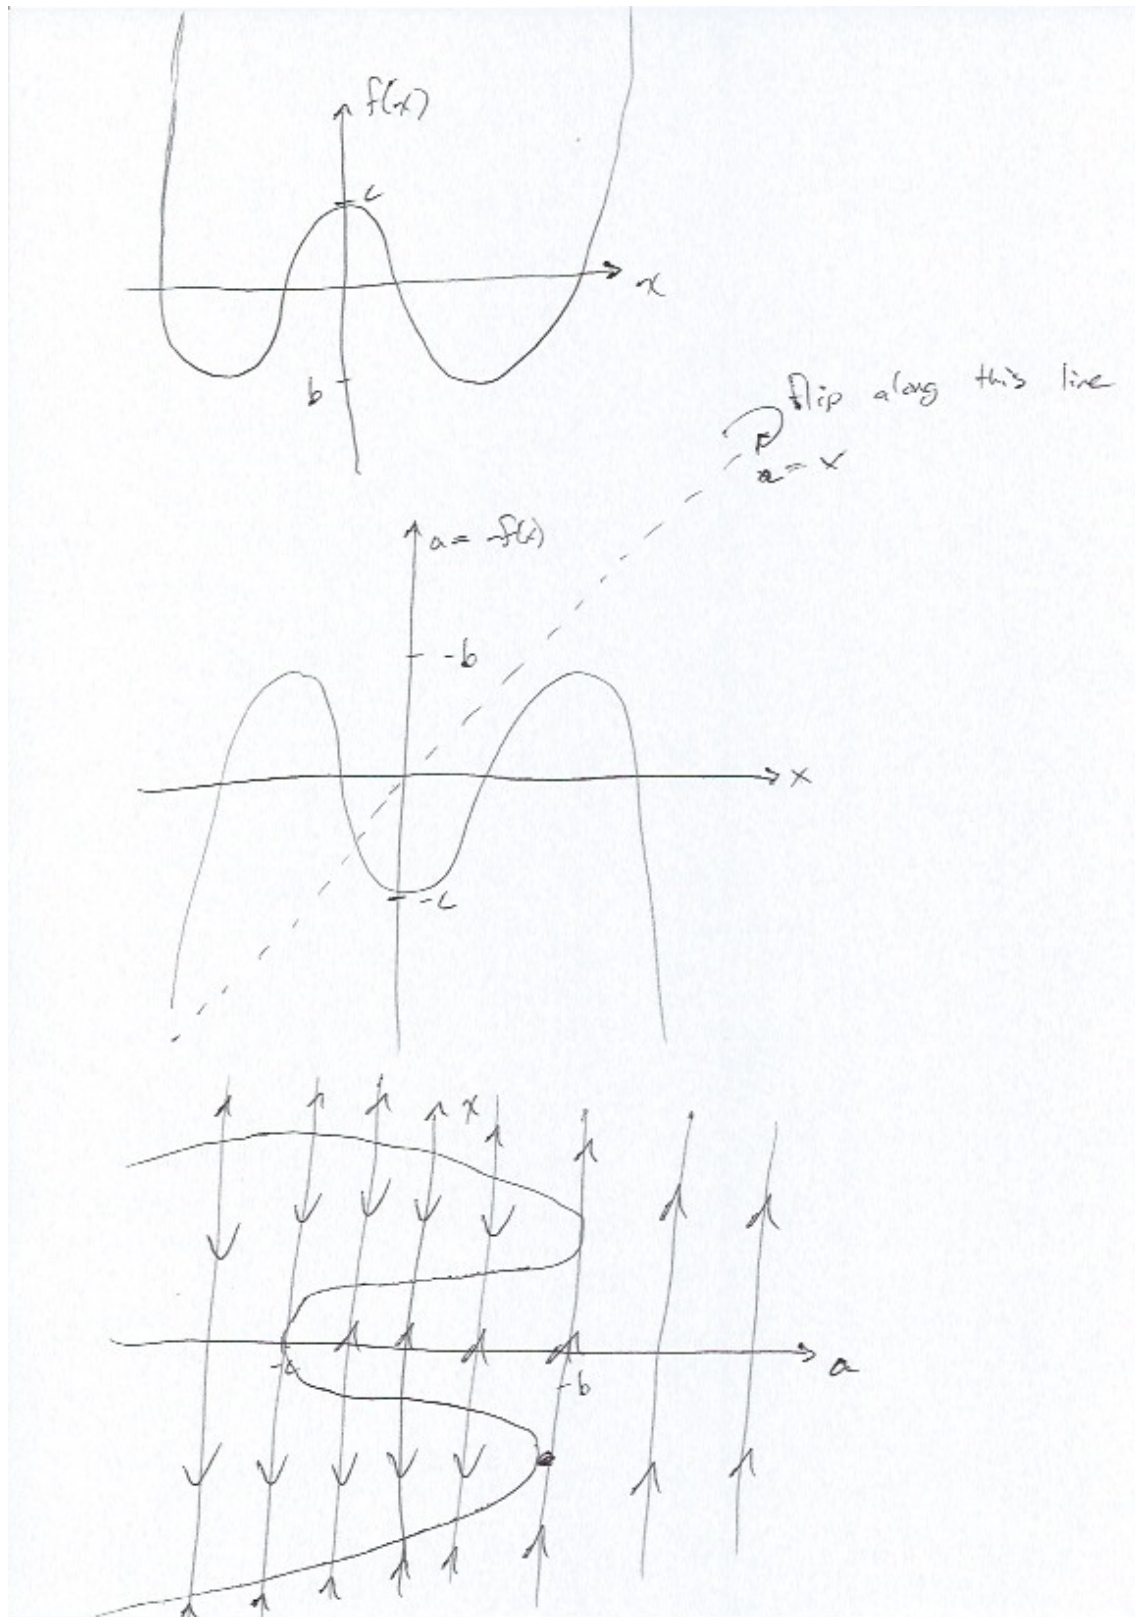 f(x)
c
x
b
flip along this line
a = x
a = -f(x)
-b
x
-c
x
-c
-b
a